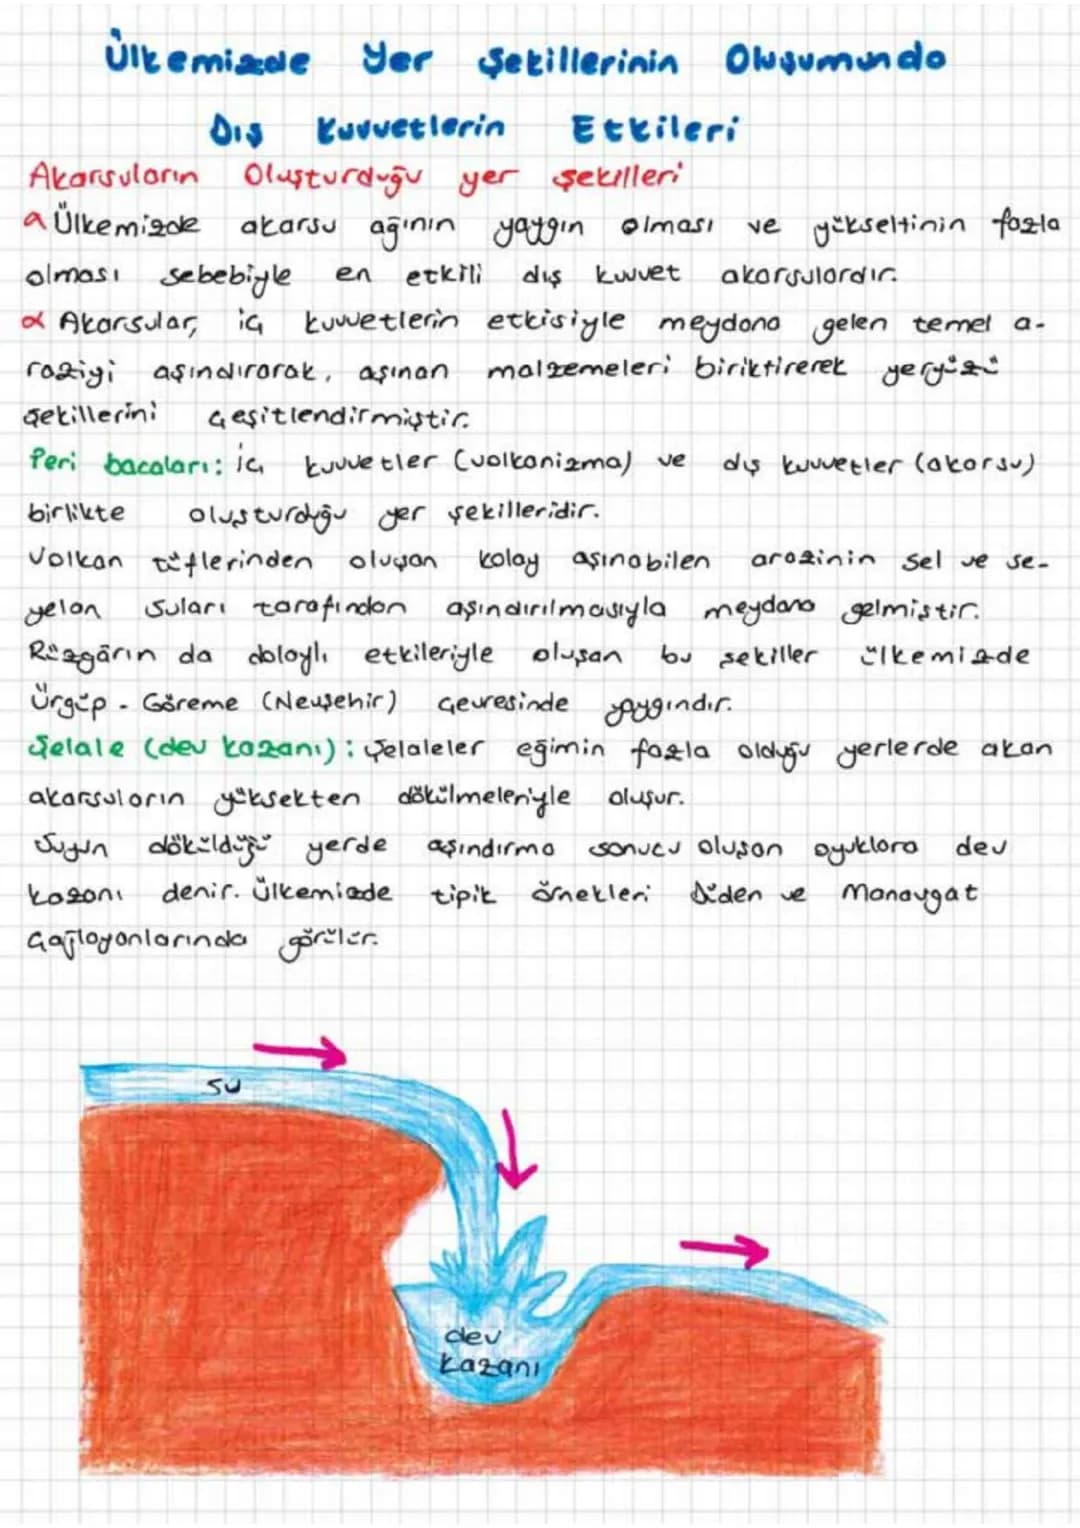 Ülkemizde Yer Şekillerinin Oluşumunda
Dış Kuvvetlerin Etkileri
Akarsuların Oluşturduğu yer şekilleri
Ülkemizde akarsu ağının yaygın olması ve yükseltinin fazla
olması sebebiyle en etkili dış kuvvet akarsulardır.
Akarsular, iç kuvvetlerin etkisiyle meydana gelen temel a-
raziyi aşındırarak, aşınan malzemeleri biriktirerek yeryüzü
şekillerini çeşitlendirmiştir.
Peri bacaları: İç kuvvetler (volkanizma) ve dış kuvvetler (akarsu)
birlikte oluşturduğu yer şekilleridir.
Volkan tüflerinden oluşan kolay aşınabilen arazinin sel ve se-
yelan suları tarafından aşındırılmasıyla meydana gelmiştir.
Rüzgârın da dolaylı etkileriyle oluşan bu şekiller ülkemizde
Ürgüp - Göreme (Nevşehir) çevresinde yaygındır.
Şelale (dev kazanı): Şelaleler eğimin fazla olduğu yerlerde akan
akarsuların yüksekten dökülmeleriyle oluşur.
Suyun döküldüğü yerde aşındırma sonucu oluşan oyuklara dev
kazanı denir. Ülkemizde tipik örnekleri Düden ve Manavgat
Çağlayanlarında görülür.
su
dev
kazanı